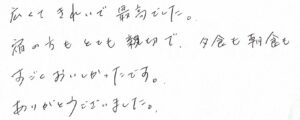 広くてきれいで最高でした。
宿の方もとても親切で、夕食も朝食も
すごくおいしかったです。
ありがとうございました。